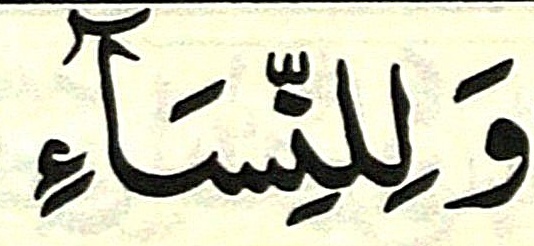 وَلِلنِّسَآءِ